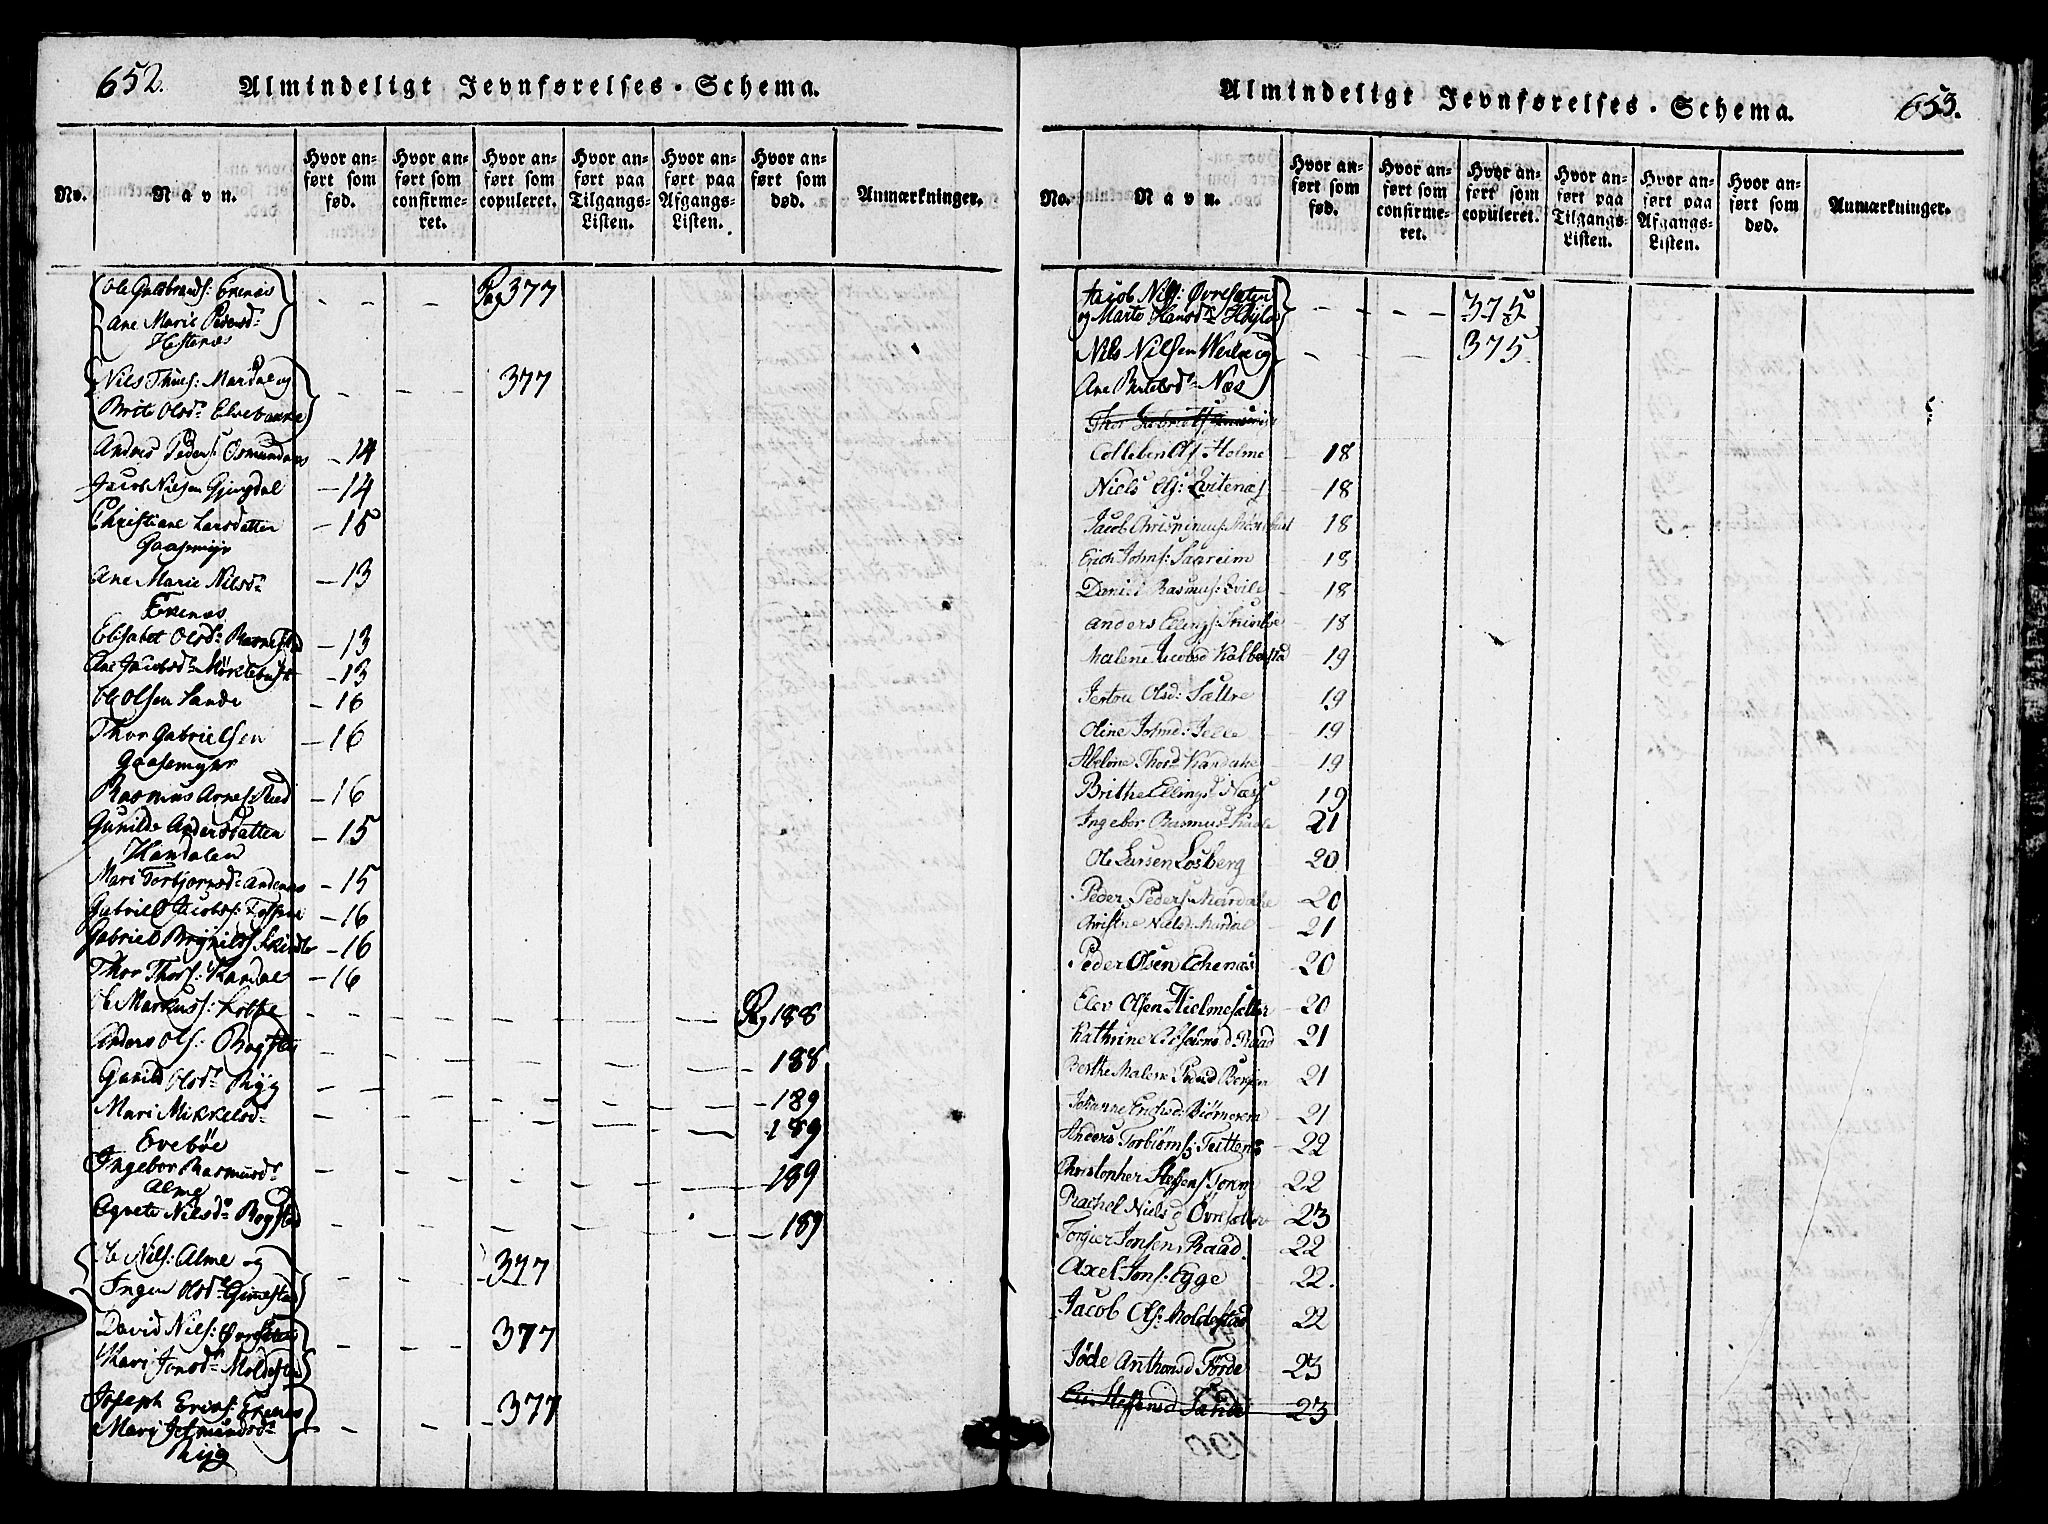 652.
Almindeligt Jevnførelses-Schema.
No.
Navn.
Hvor anført som fød.
Hvor anført som confirmeret.
Hvor anført som copuleret.
Hvor anført paa Tilgangs-Listen.
Hvor anført paa Afgangs-Listen.
Hvor anført som død.
Anmærkninger.
Ole Guldbrands: Exenæs — — Pag 377
Ane Marie Pedersd:
Hestenæs
Nils Thues: Mardal og — — 377
Brite Olsd: Elvebakke
Andres Peders: Osmundnæs — 14
Jacob Nilsen Gjengdal — 14
Christiane Larsdatter — 15
Gaasemyr
Ane Marie Nilsd: — 13
Exenæs
Elisabet Olsd: — 13
Ane Jacobsd: Mørklebust — 13
Ole Olsen Sande — 16
Thor Gabrielsen — 16
Gaasemyhr
Rasmus Arnes: Reed — 16
Gunilde Andersdatter — 15
Kandalen
Mari Torbjørnsd: Andenæs — 15
Gabriel Jacobs: — 16
Gabriel Brynilds: — 16
Thor Thors: Kandal — 16
Ole Markuss: Lothe — — — — — Pag 188
Anders Ols: Bogstad — — — — — 188
Gunild Olsd: Ryg — — — — — 189
Mari Mikkelsd: — — — — — 189
Evebøe
Ingebor Rasmusd: — — — — — 189
Alme
Agnete Nilsd: Bogstad — — — — — 189
Ole Nils: Alme og — — 377
Inger Olsd: Gimestad
David Nils: — — 377
Mari Jonsd: Moldestad
Joseph Ervs: Exenæs — — 377
Mari
Ryg
653.
Almindeligt Jevnførelses-Schema.
No.
Navn.
Hvor anført som fød.
Hvor anført som confirmeret.
Hvor anført som copuleret.
Hvor anført paa Tilgangs-Listen.
Hvor anført paa Afgangs-Listen.
Hvor anført som død.
Anmærkninger.
Jacob Nils: Øvresæter — — 375
og Marte Hansd:
Nils Nilsen og — — 375.
Ane Bertelsd: Næs
Ols Holme — 18
Niels Ols: Qvitenæs — 18
Jacob — 18
Erich Johns: Saareim — 18
Daniel Rasmus: Evile — 18
Anders Ellings: — 18
Malene Jacobsd Kalbestad — 19
Olsd: Sættre — 19
Oline Johnd: — 19
Abelone Thord: Kandahl — 19
Brithe Ellingsd Næss — 19
Ingebor Rasmusd — 21
Ole Larsen Losberg — 20
Peder Peders: Mardahl — 20
Christne Nielsd: Mardal — 21
Peder Olsen Echenæs — 20
Elev Olsen Hielmesætter — 20
Kathrine d: Raad — 21
Berthe Malene — 21
Johanne Erichsd: Biørnerem — 21
Anders Torbiørns: — 22
Christopher Steffens: — 22
Rachel Niels d Øvresætter — 23
Torgier Jonsen Raad. — 22
Axel Jons: Egge — 22.
Jacob Ols: Moldestad — 22
Jøde Anthonsd Førde — 23
Steffensd — 23